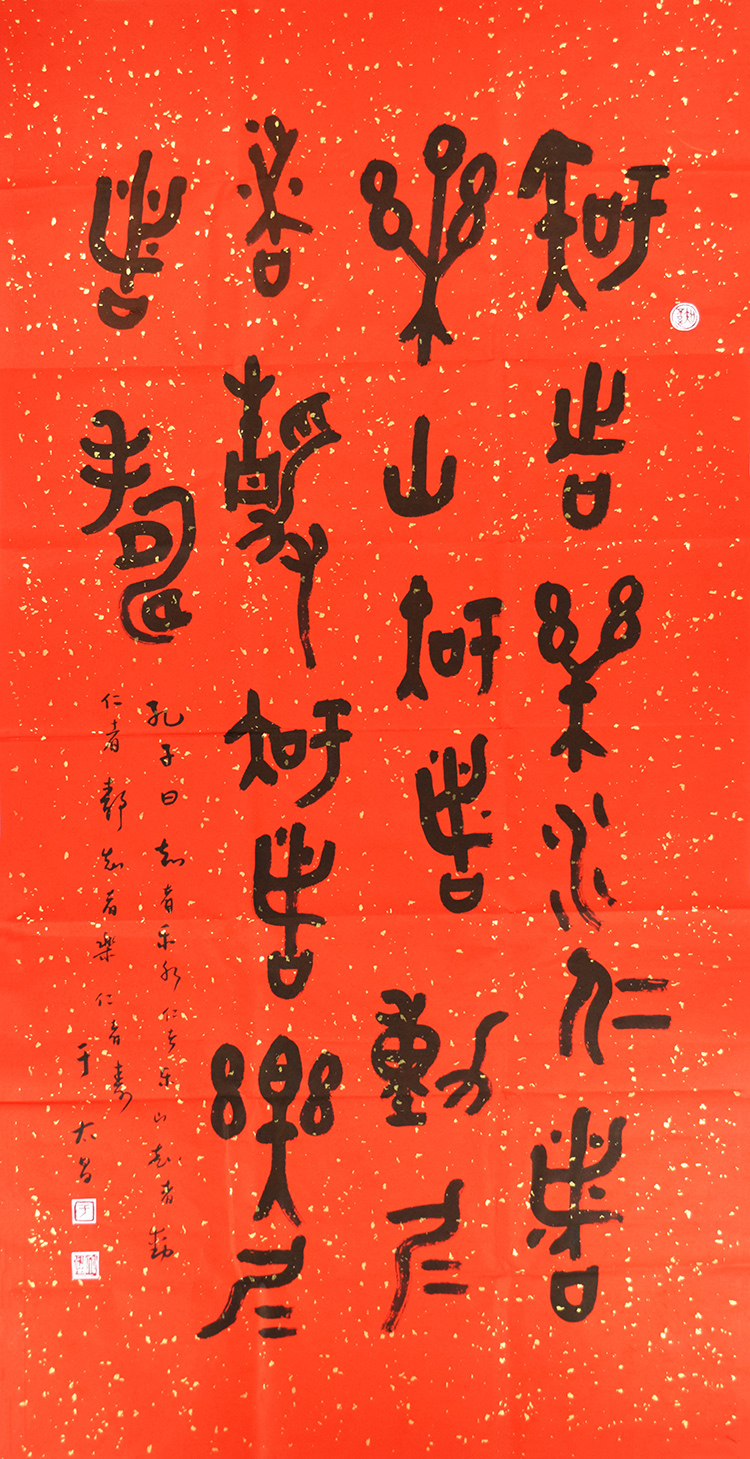 知者樂水仁者
樂山知者動仁
者靜知者樂仁
者壽
孔子曰知者乐水仁者乐山知者動
仁者靜知者樂仁者壽于大
于